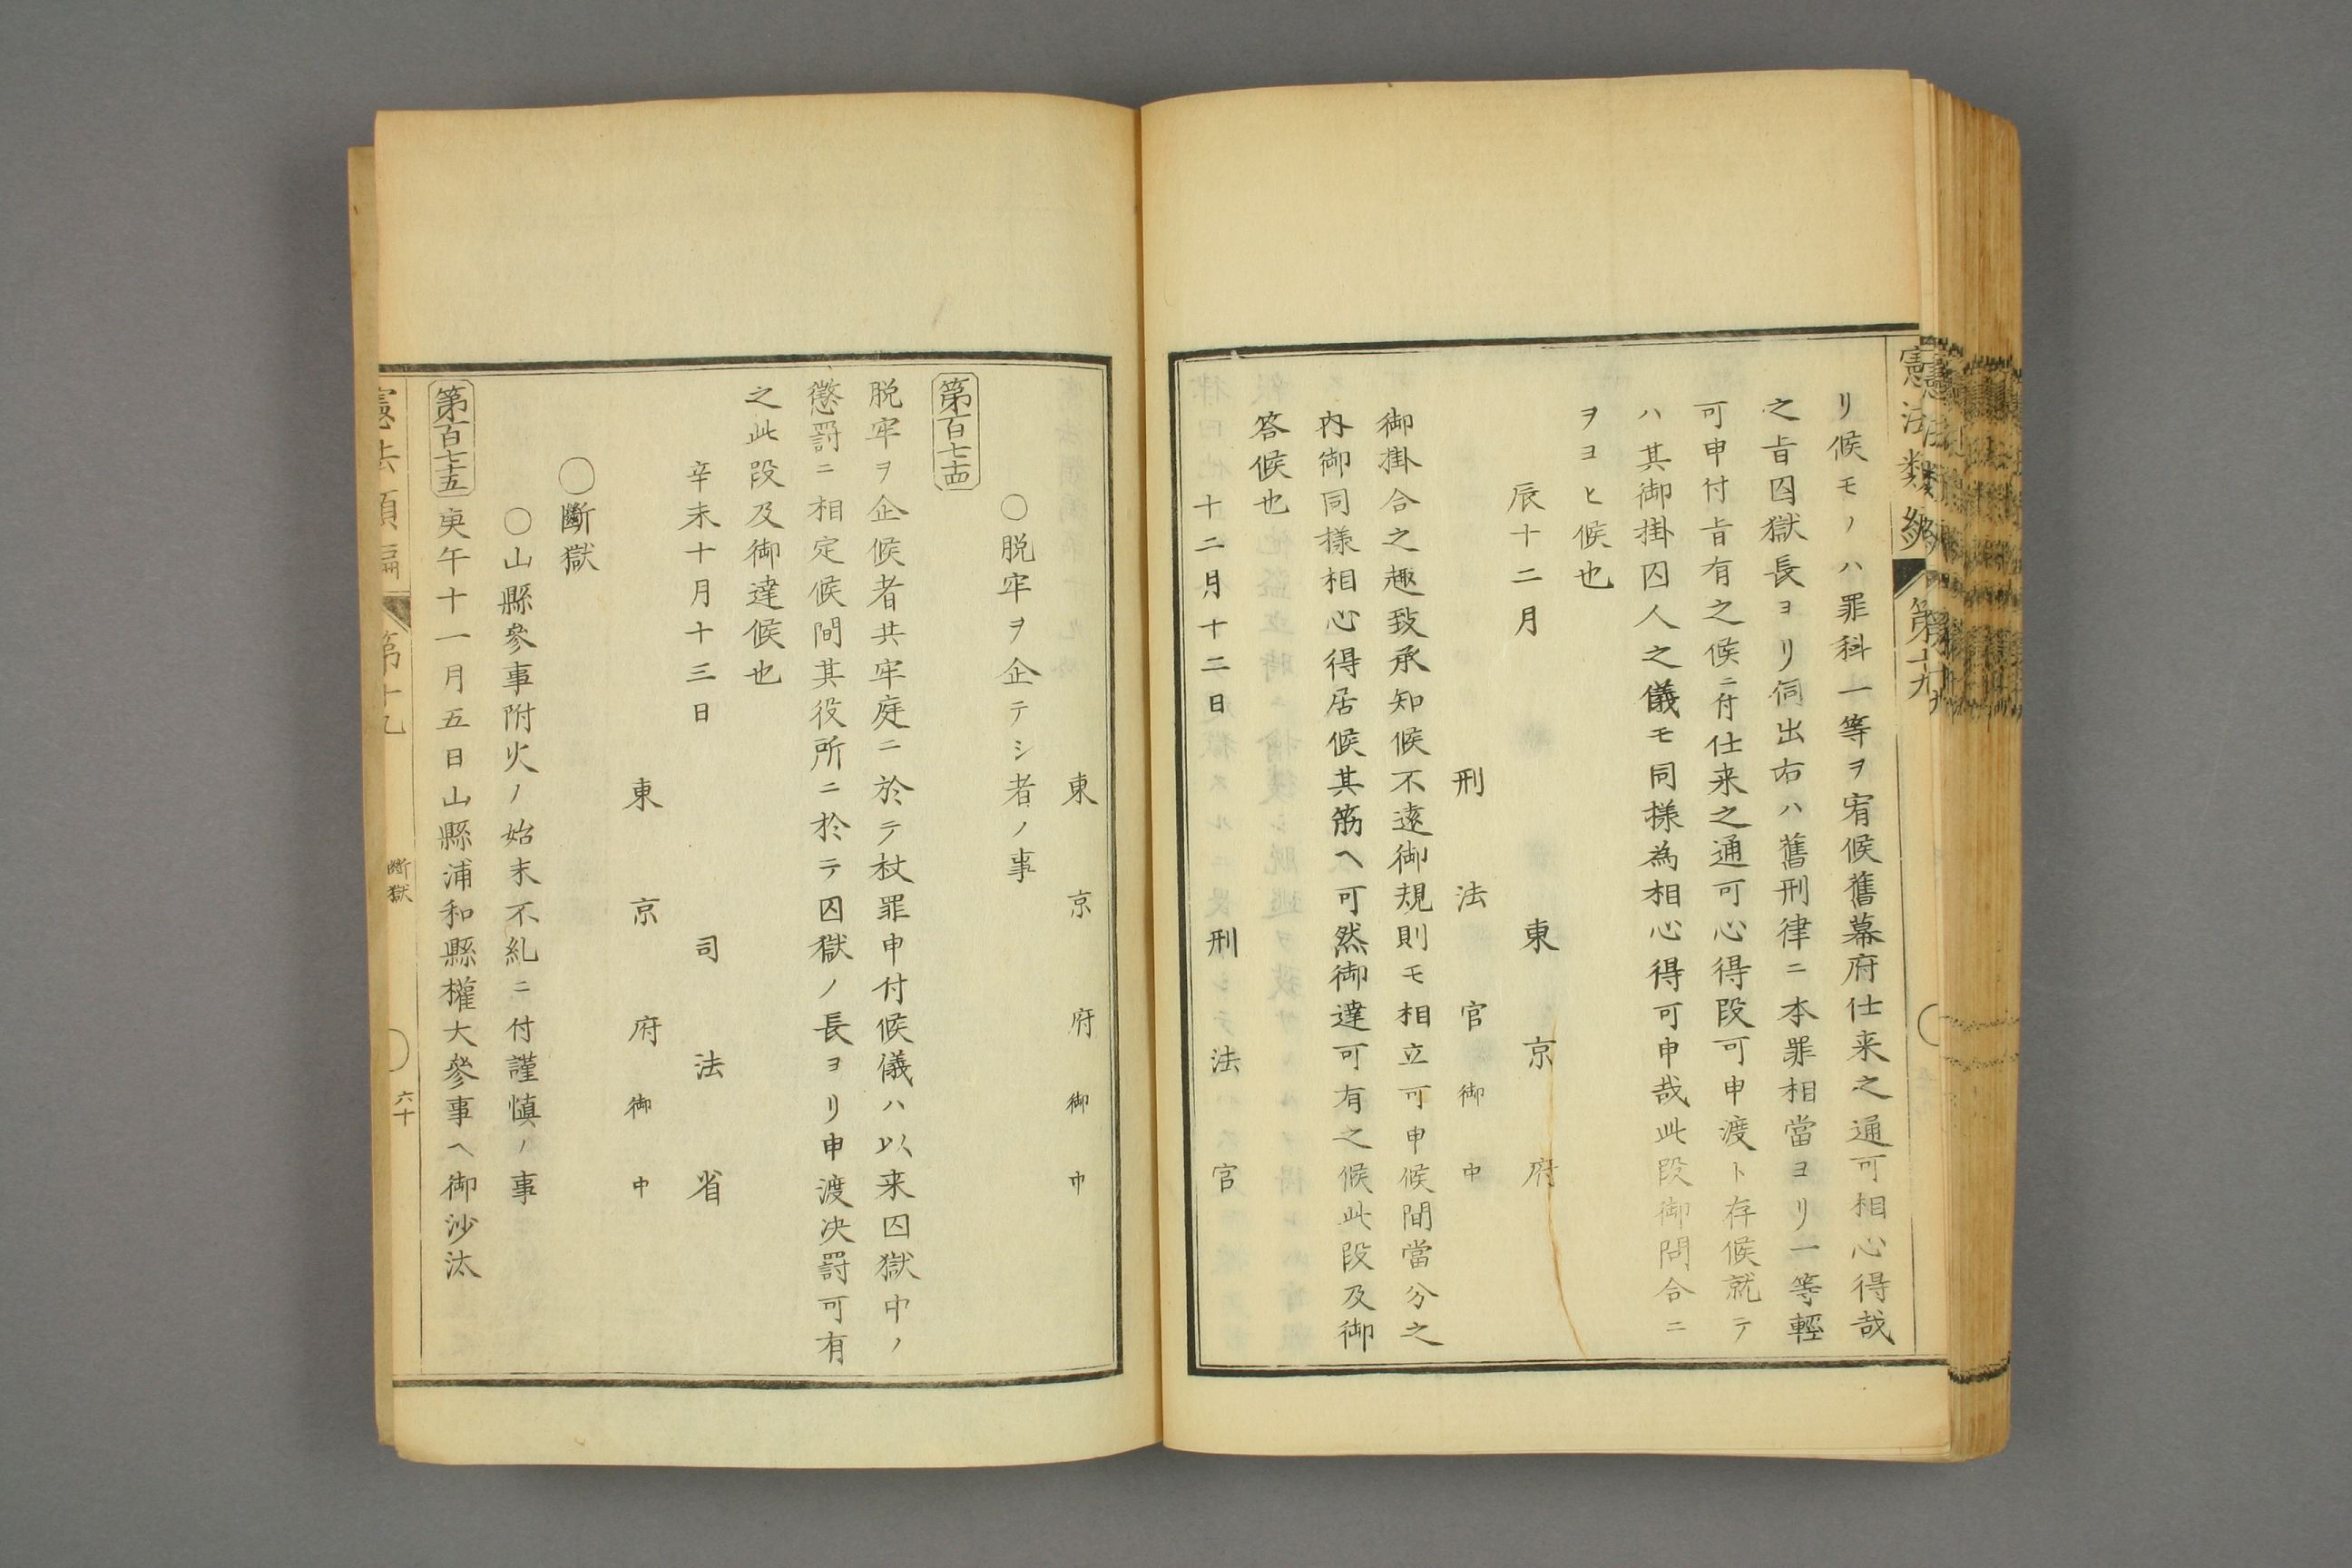 憲法類編 第十九
リ候モノハ罪科一等ヲ宥候舊幕府仕来之通可相心得哉
之旨囚獄長ヨリ伺出右ハ舊刑律ニ本罪相當ヨリ一等輕
可申付旨有之候ニ付仕来之通可心得段可申渡ト存候就テ
ハ其御掛囚人之儀モ同様為相心得可申哉此段御問合ニ
ヲヨヒ候也
辰十二月
東京府
刑法官御中
御掛合之趣致承知候不遠御規則モ相立可申候間當分之
内御同様相心得居候其筋ヘ可然御達可有之候此段及御
答候也
十二月十二日 刑法官
東京府御中
○脱牢ヲ企テシ者ノ事
第百七十四
脱牢ヲ企候者共牢庭ニ於テ杖罪申付候儀ハ以来囚獄中ノ
懲罰ニ相定候間其役所ニ於テ囚獄ノ長ヨリ申渡决罰可有
之此段及御達候也
辛未十月十三日
司法省
東京府御中
○斷獄
○山縣參事附火ノ始末不糺ニ付謹慎ノ事
第百七十五 庚午十一月五日山縣浦和縣權大參事ヘ御沙汰
憲法類編 第十九 斷獄 六十